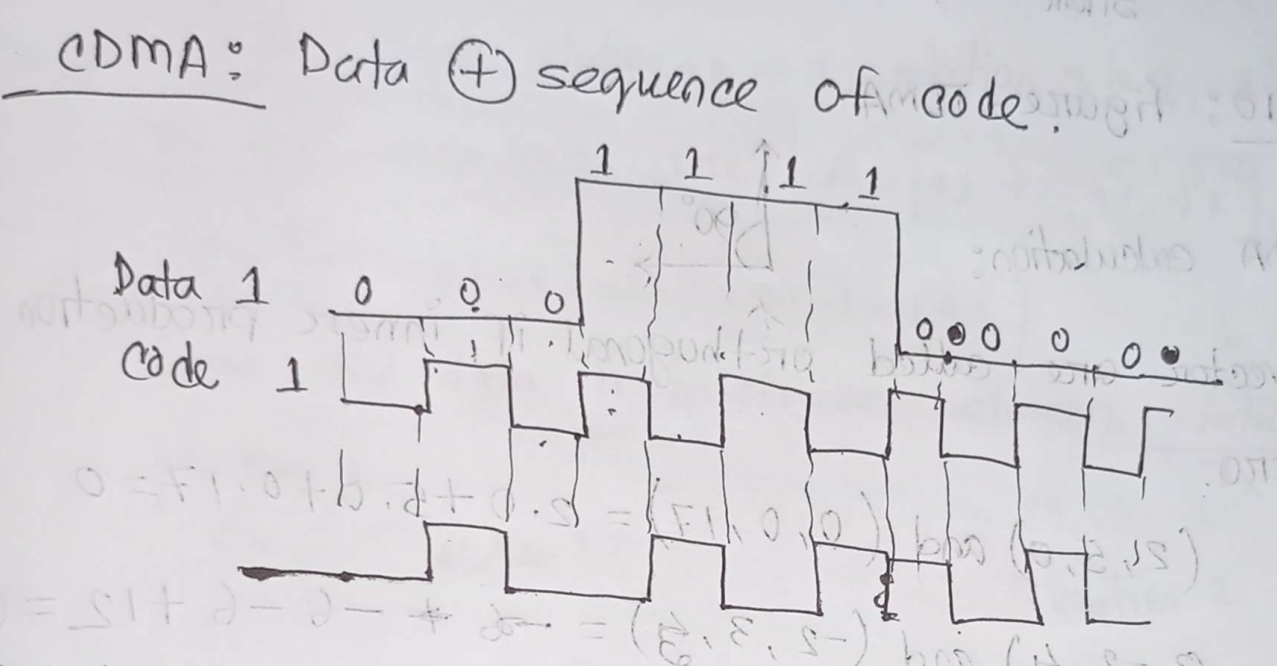 CDMA: Data ⊕ sequence of code.
1 1 1 1
Data 1 0 0 0 0 0 0 0
Code 1